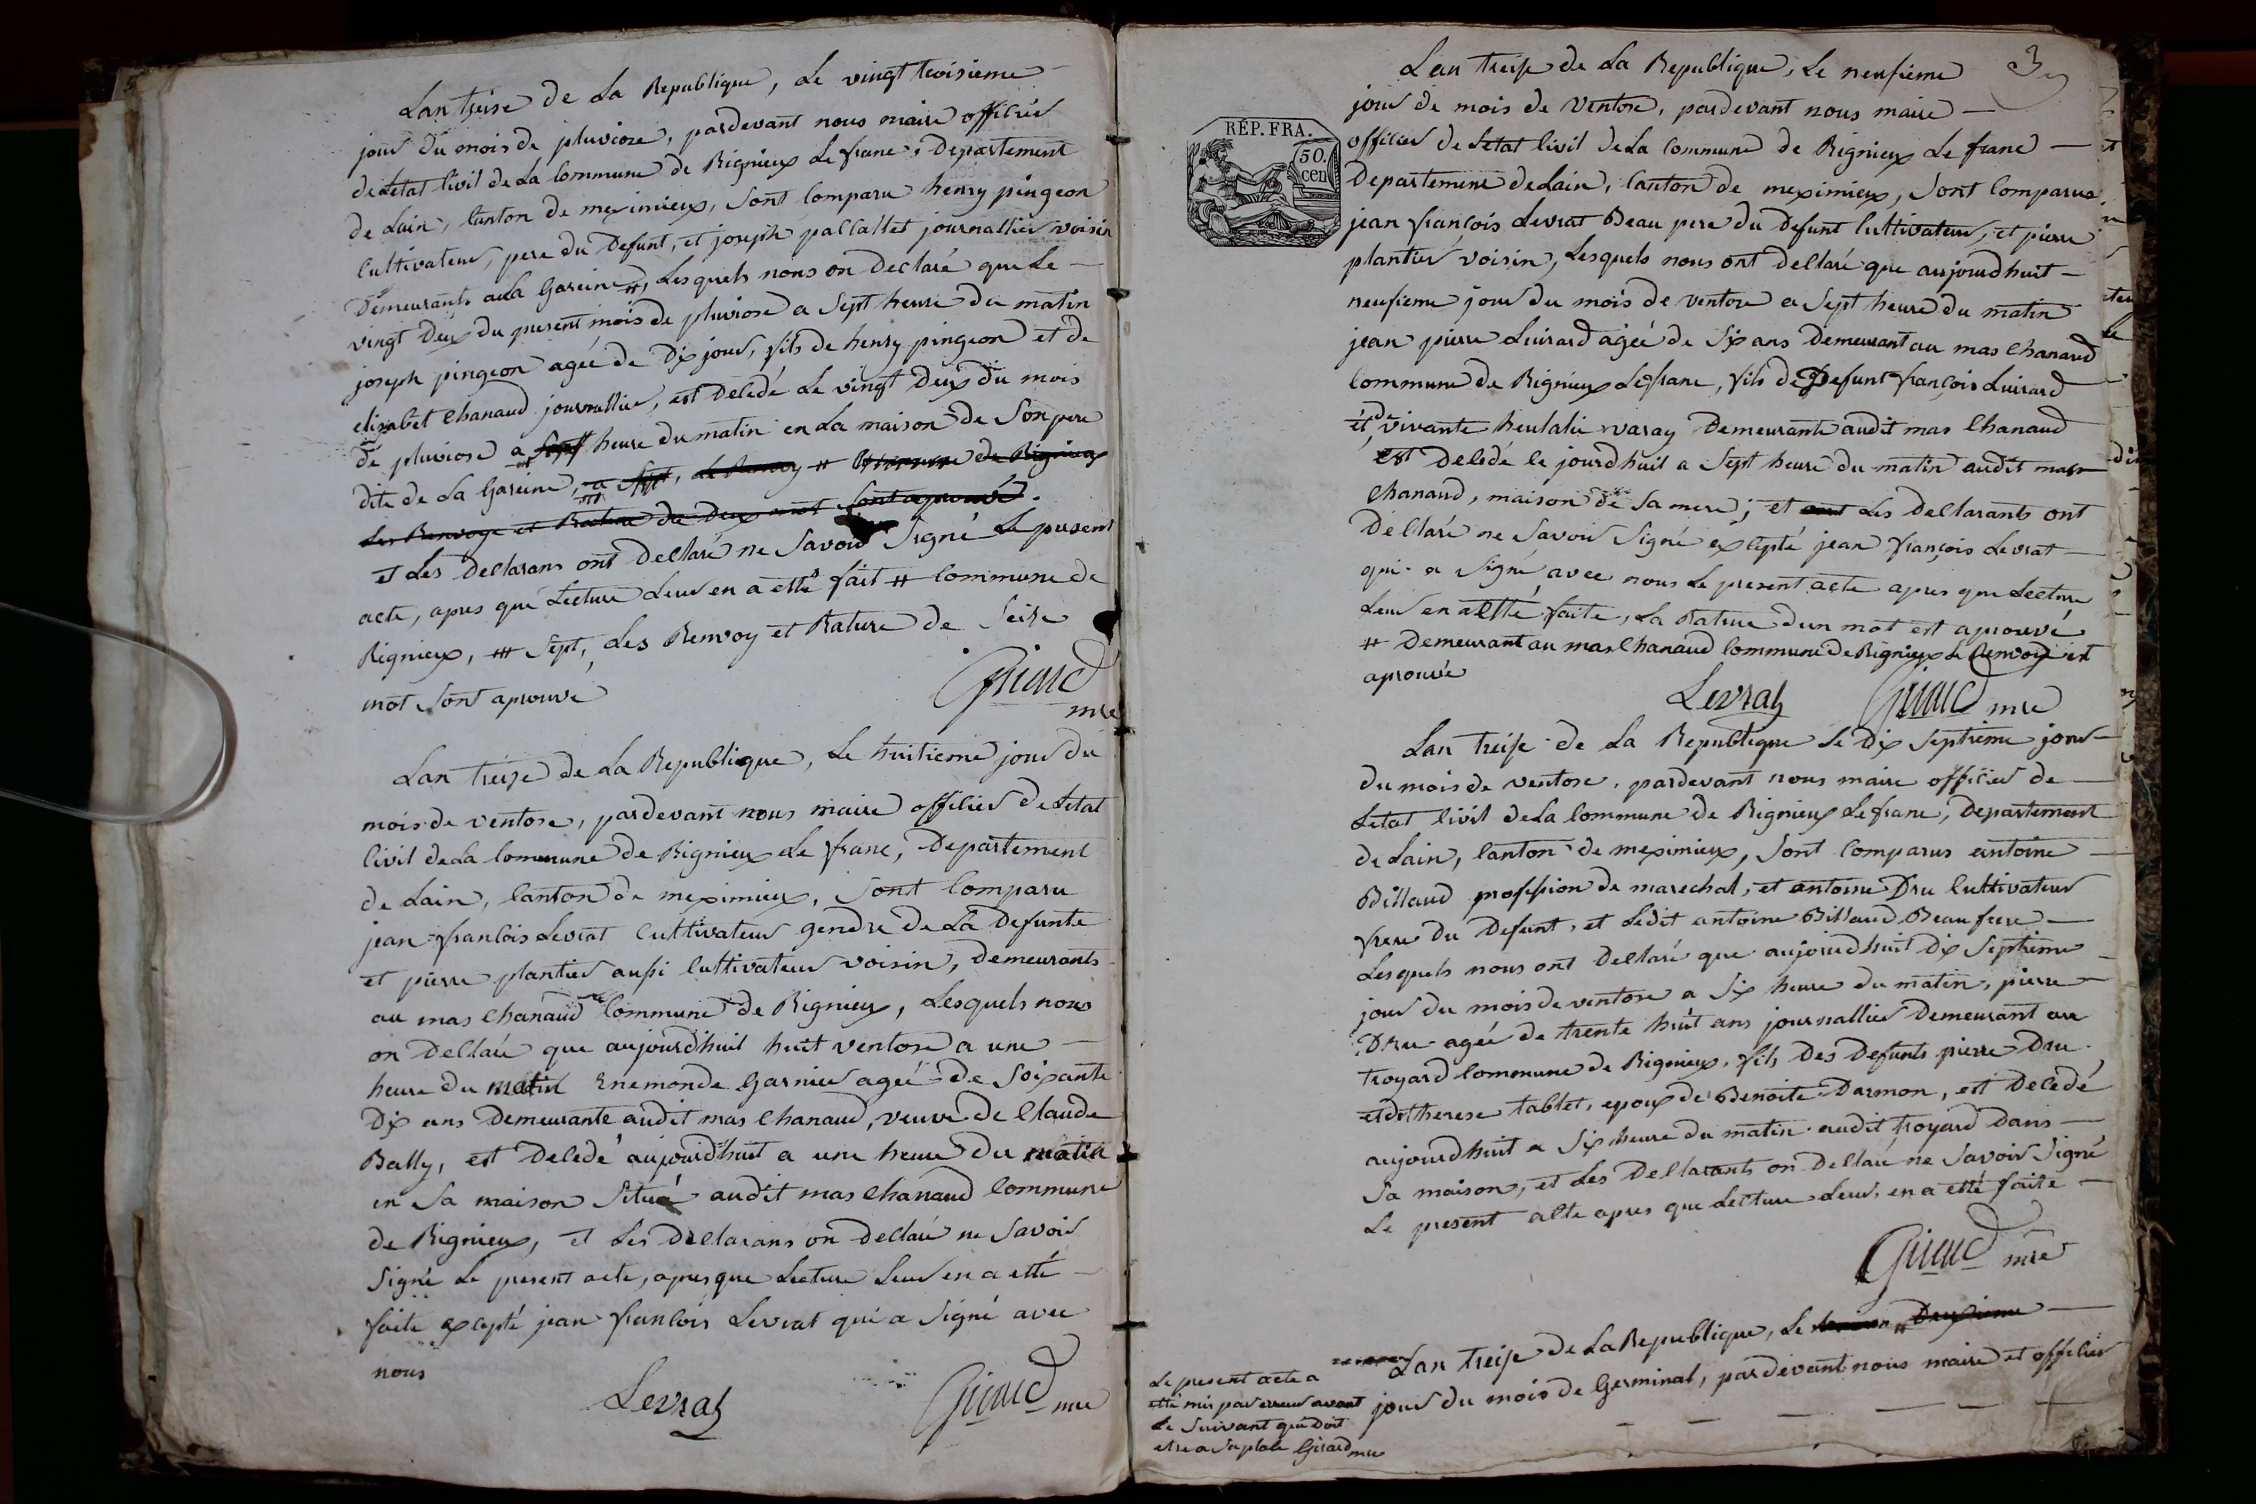 Lan treise de La Republique, Le vingt troisieme
jour du mois de pluviose, pardevant nous maire officiér
de Letat Civil de La Commune de Rignieux Le franc, Departement
de Lain, Canton de meximieux, Sont Comparu henry pingeon
Cultivateur, pere du Defunt, et joseph pallallet journallier voisin
Demeurants a La Gareine #, Lesquels nous on Declaré que Le
vingt Deux du present mois de pluviose a Sept heure du matin
joseph pingeon agée de Dix jour, fils de henry pingeon et de
elizabet Chanaud journallier, est Decedé Le vingt Deux du mois
de pluviose a Sept heure du matin en La maison de Son pere
dite de La Gareine, a Sept, Le Renvoy # Commune de Rignieux
Les Renvoye et Rature de Deux mot Sont aprouvé.
et Les Declarans ont Declaré ne Savoir Signé Le present
acte, apres que Lecture Leur en a etté fait # Commune de
Rignieux, ## Sept, Les Renvoy et Rature de Seise
mot Sont aprouvé
Girard
mre
Lan treize de La Republique, Le huitieme jour du
mois de ventose, pardevant nous maire officier de Letat
Civil de La Commune de Rignieux Le franc, Departement
de Lain, Canton de meximieux, Sont Comparu
jean francois Levrat Cultivateur gendre de La Defunte
et pierre plantier aussi Cultivateur voisin, Demeurants
au mas Chanaud Commune de Rignieux, Lesquels nous
on Declaré que aujourdhuit huit ventose a une
heure du matin Enemonde Garnier ageé de Soixante
Dix ans Demeurante audit mas Chanaud, veuve de Claude
Bally, est Decedé aujourdhuit a une heure du matin
en Sa maison Situé audit mas Chanaud Commune
de Rignieux, et Les Declarans on Declaré ne Savoir
Signé Le present acte, apres que Lecture Leur en a etté
faite excepté jean francois Levrat qui a Signé avec
nous
Levrat
Girard mre
3
RÉP. FRA.
50.
cen
Lan treise de La Republique, Le neufieme
jour de mois de Ventose, pardevant nous maire
officier de Letat Civil de La Commune de Rignieux Le franc
Departement de Lain, Canton de meximieux, Sont Comparus
jean françois Levrat Beau pere du Defunt Cultivateur, et pierre
plantier voisin, Lesquels nous ont Declaré que aujourdhuit
neufieme jour du mois de ventose a Sept heure du matin
jean pierre Luirard agée de Six ans Demeurant au mas Chanaud
Commune de Rignieux Le franc, fils de Defunt françois Luirard
et de vivante heulalie varay Demeurante audit mas Chanaud
est Decedé le jourdhuit a Sept heure du matin audit mas
Chanaud, maison de Sa mere; et Les Declarants ont
Declaré ne Savoir Signé excepté jean françois Levrat
qui a Signé avec nous Le present acte apres que Lecture
Leur en a etté faite, La Rature dun mot est aprouvé
# Demeurant au mas Chanaud Commune de Rignieux Le Renvoy est
aprouvée
Levrat
Girard mre
Lan treise de La Republique Le Dix Septieme jour
du mois de ventose, pardevant nous maire officier de
Letat Civil de La Commune de Rignieux Le franc, Departement
de Lain, Canton de meximieux, Sont Comparus antoine
Billaud profession de marechal, et antoine Dru Cultivateur
frere du Defunt, et Ledit antoine Billaud Beau frere
Lesquels nous ont Declaré que aujourdhuit Dix Septieme
jour du mois de ventose a Six heure du matin, pierre
Dru agée de trente huit ans journallier Demeurant au
troyard Commune de Rignieux, fils Des Defunts pierre Dru
et de therese tablet, epoux de Benoite Darmon, est Decedé
aujourdhuit a Six heure du matin audit troyard Dans
Sa maison, et Les Declarants on Declaré ne Savoir Signé
Le present acte apres que Lecture Leur en a etté faite
Girard mre
Lan treise de La Republique, Le Deuxieme
jour du mois de Germinal, pardevant nous maire et officier
Le present acte a
etté mis par erreur avant
Le Suivant qui Doit
etre a Sa place Girard mre